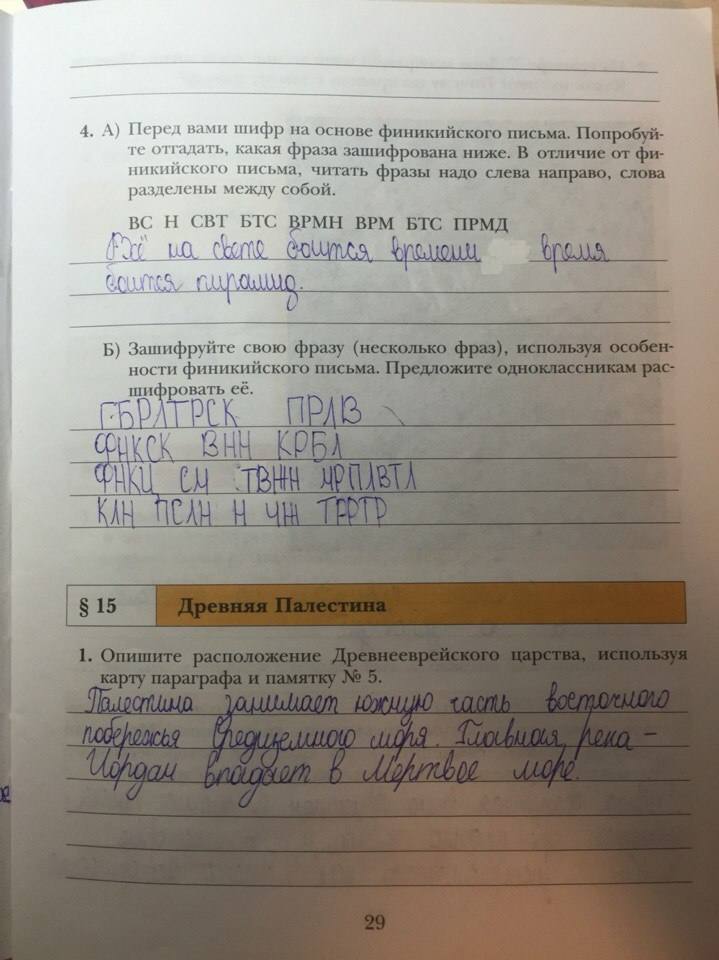 4. А) Перед вами шифр на основе финикийского письма. Попробуй-
те отгадать, какая фраза зашифрована ниже. В отличие от фи-
никийского письма, читать фразы надо слева направо, слова
разделены между собой.
ВС Н СВТ БТС ВРМН ВРМ БТС ПРМД
Всё на свете боится времени время
боится пирамид.
Б) Зашифруйте свою фразу (несколько фраз), используя особен-
ности финикийского письма. Предложите одноклассникам рас-
шифровать её.
ГБРЛТРСК ПРЛВ
ФНКСК ВНН КРБЛ
ФНКЦ СМ ТВЖН МРПЛВТЛ
КЛН ПСЛН Н ЧЖ ТРРТР
§ 15 Древняя Палестина
1. Опишите расположение Древнееврейского царства, используя
карту параграфа и памятку № 5.
Палестина занимает южную часть восточного
побережья Средиземного моря. Главная река –
Иордан впадает в Мёртвое море.
29